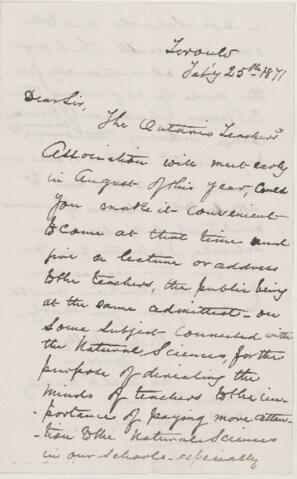 Toronto
Feb'y 25th 1871
Dear Sir,
The Ontario Teachers'
Association will meet early
in August of this year, Could
you make it convenient
to come at that time and
give a lecture or address
to the teachers, the public being
at the same admitted - on
some subject connected with
the Natural Sciences, for the
purpose of directing the
minds of teachers to the im-
-portance of paying more atten
-tion to the Natural Sciences
in our schools - especially